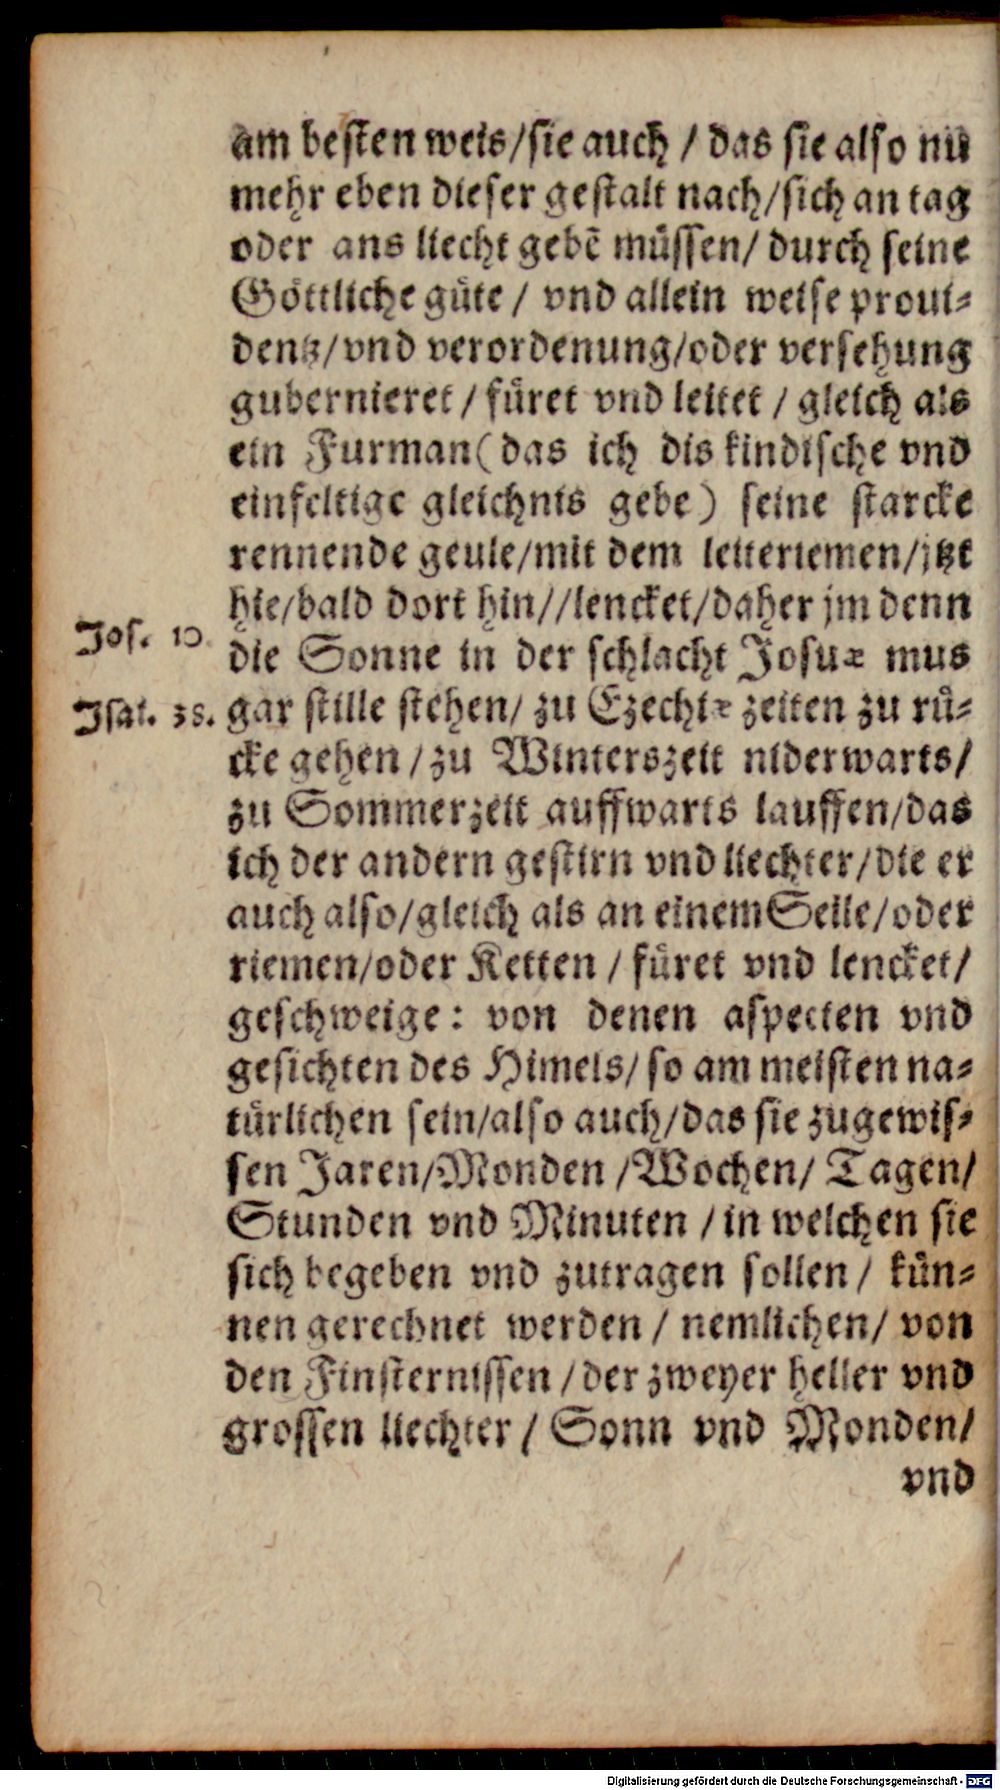 am besten weis/sie auch / das sie also nũ
mehr eben dieser gestalt nach/sich an tag
oder ans liecht gebẽ müssen/ durch seine
Göttliche güte / vnd allein weise proui-
dentz/vnd verordenung/oder versehung
gubernieret / füret vnd leitet / gleich als
ein Furman(das ich dis kindische vnd
einfeltige gleichnis gebe) seine starcke
rennende geule/mit dem leitteriemen/jtzt
hie/bald dort hin//lencket/daher jm denn
Jos. 10.
die Sonne in der schlacht Josuæ mus
Isai. 38.
gar stille stehen/ zu Ezechiæ zeiten zu rü-
cke gehen /zu Winterszeit niderwarts/
zu Sommerzeit auffwarts lauffen/das
ich der andern gestirn vnd liechter/die er
auch also/gleich als an einem Seile/oder
riemen/oder Ketten / füret vnd lencket/
geschweige: von denen aspecten vnd
gesichten des Himels/ so am meisten na-
türlichen sein/also auch/das sie zugewis-
sen Jaren/Monden /Wochen/ Tagen/
Stunden vnd Minuten / in welchen sie
sich begeben vnd zutragen sollen / kün-
nen gerechnet werden / nemlichen/ von
den Finsternissen /der zweyer heller vnd
grossen liechter / Sonn vnd Monden/
vnd
Digitalisierung gefördert durch die Deutsche Forschungsgemeinschaft - DFG